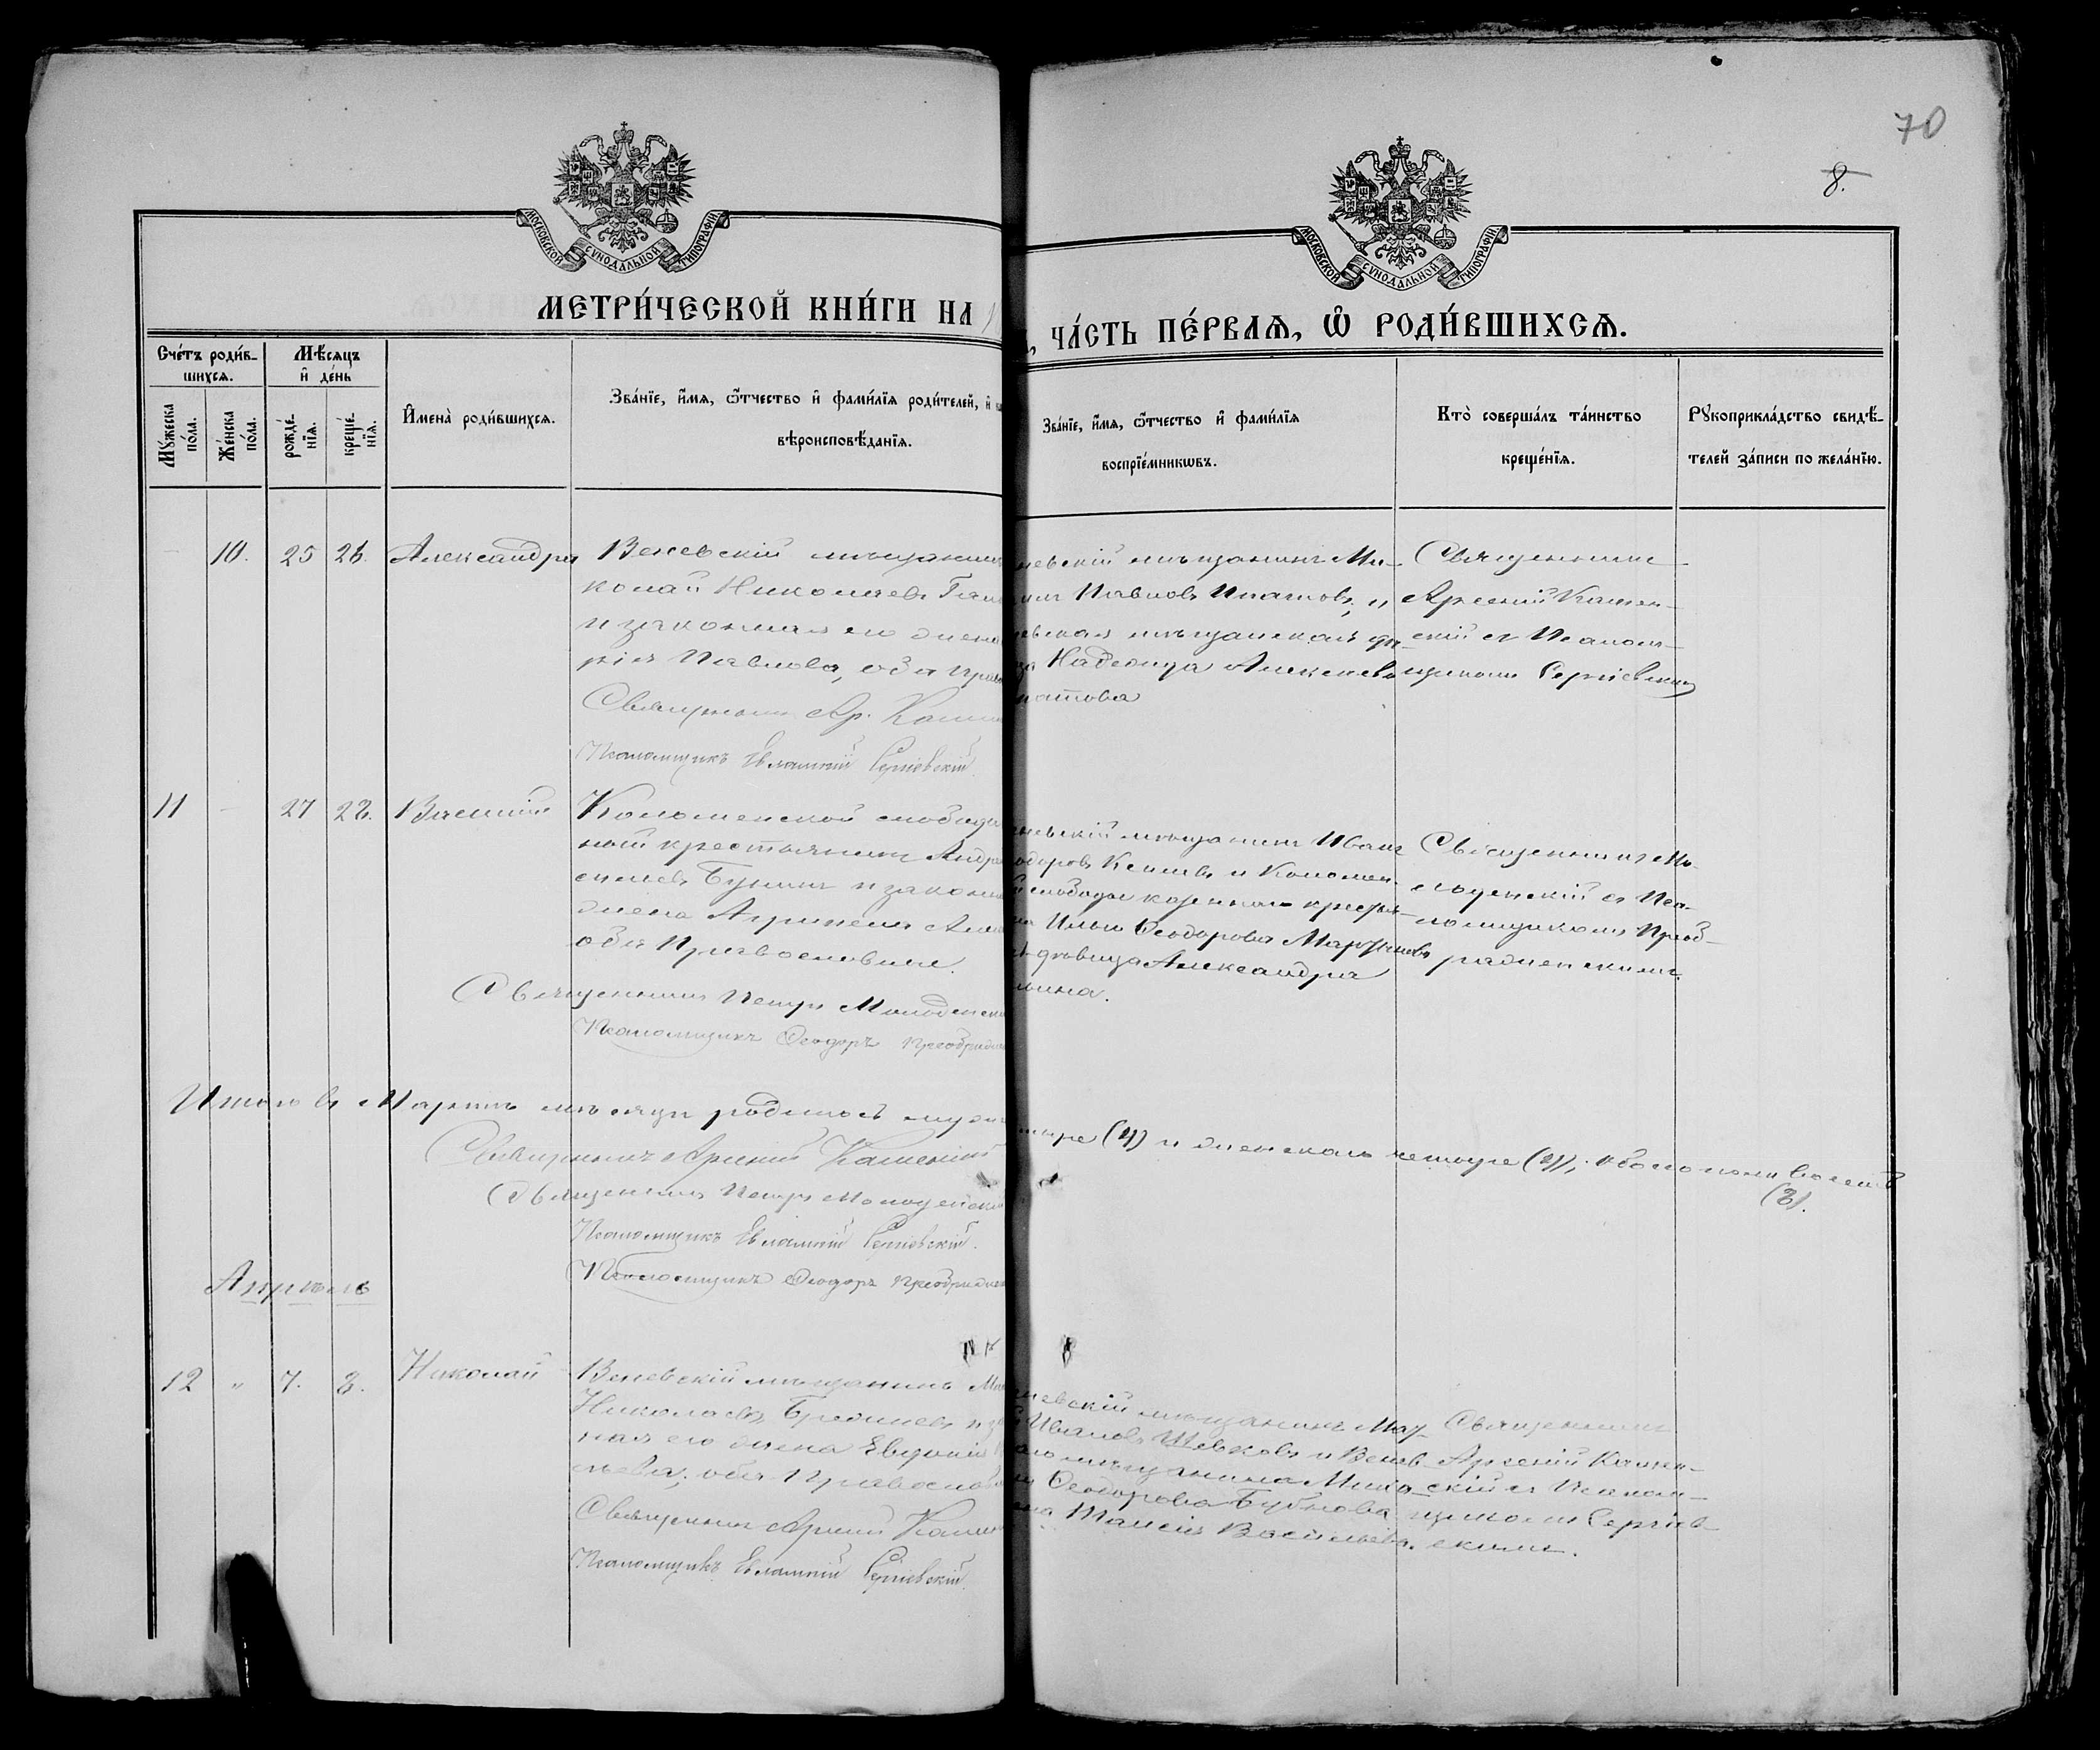 70
8.
МОСКОВСКОЙ СУНОДАЛЬНОЙ ТИПОГРАФІИ
МОСКОВСКОЙ СУНОДАЛЬНОЙ ТИПОГРАФІИ
МЕТРИ́ЧЕСКОЙ КНИ́ГИ НА 1
, ЧА́СТЬ ПЕ́РВАЯ, Ѡ РОДИ́ВШИХСЯ.
Сче́тъ роди́в-
шихся.
Мѣ́сяцъ
и де́нь
Му́жеска
по́ла.
Же́нска
по́ла.
рожде́-
нїя.
креще́-
нїя.
И́мена̀ роди́вшихся.
Зва́нїе, и́мя, ѻ́тчество и фами́лїя роди́телей, и
вѣроисповѣ́данїя.
Зва́нїе, и́мя, ѻ́тчество и фами́лїя
воспрїе́мникѡвъ.
Кто̀ соверша́лъ та́инство
креще́нїя.
Рукоприкла́дство свидѣ́-
телей за́писи по жела́нїю.
10. 25 26. Александра
Веневскій мѣщанин
колай Николаевъ
и законная его жена
рія Павлова, оба прав
Священникъ Ар. Камен
Псаломщикъ Евлампій Сергіевскій.
невскій мѣщанинъ Ми-
илъ Павловъ Ипатовъ, и
евская мѣщанская дѣ-
ца Надежда Алексѣева
патова
Священникъ
Арсеній Камен-
скій съ Псалом-
щикомъ Сергіевскимъ
11 – 27 28. Василій
Коломенской слободы
ный крестьянинъ Андре
сѣевъ Бунинъ и законн
жена Агрипена Але
оба Православные.
Священникъ Петръ Молоденск
Псаломщикъ Ѳеодоръ Преображен
невскій мѣщанинъ Иванъ
одоровъ и Коломен-
й слободы казеннаго кресть-
на Ильи Ѳеодорова
дѣвица Александра
ьина.
Священникъ Мо-
лоденскій съ Пса-
ломщикомъ Преоб-
раженскимъ.
Итого въ Мартѣ мѣсяцѣ родилось муже
тыре (4) и женскаго четыре (4), обоего пола восемь
(8).
Священникъ Арсеній Каменскій
Священникъ Петръ Молоденскій
Псаломщикъ Евлампій Сергіевскій.
Псаломщикъ Ѳеодоръ Преображен
Апрѣль
12 „ 7. 8. Николай
Веневскій мѣщанинъ Ми
Николаевъ и за
ная его жена Евдокія
ьева, оба Православ
Священникъ Арсеній Камен
Псаломщикъ Евлампій Сергіевскій.
невскій мѣщанинъ
Ивановъ Шевковъ и Венев-
аго мѣщанина Миха-
Ѳеодорова Бубнова
ена Таисія Васильева.
Священникъ
Арсеній Камен-
скій съ Псалом-
щикомъ Сергіев-
скимъ.